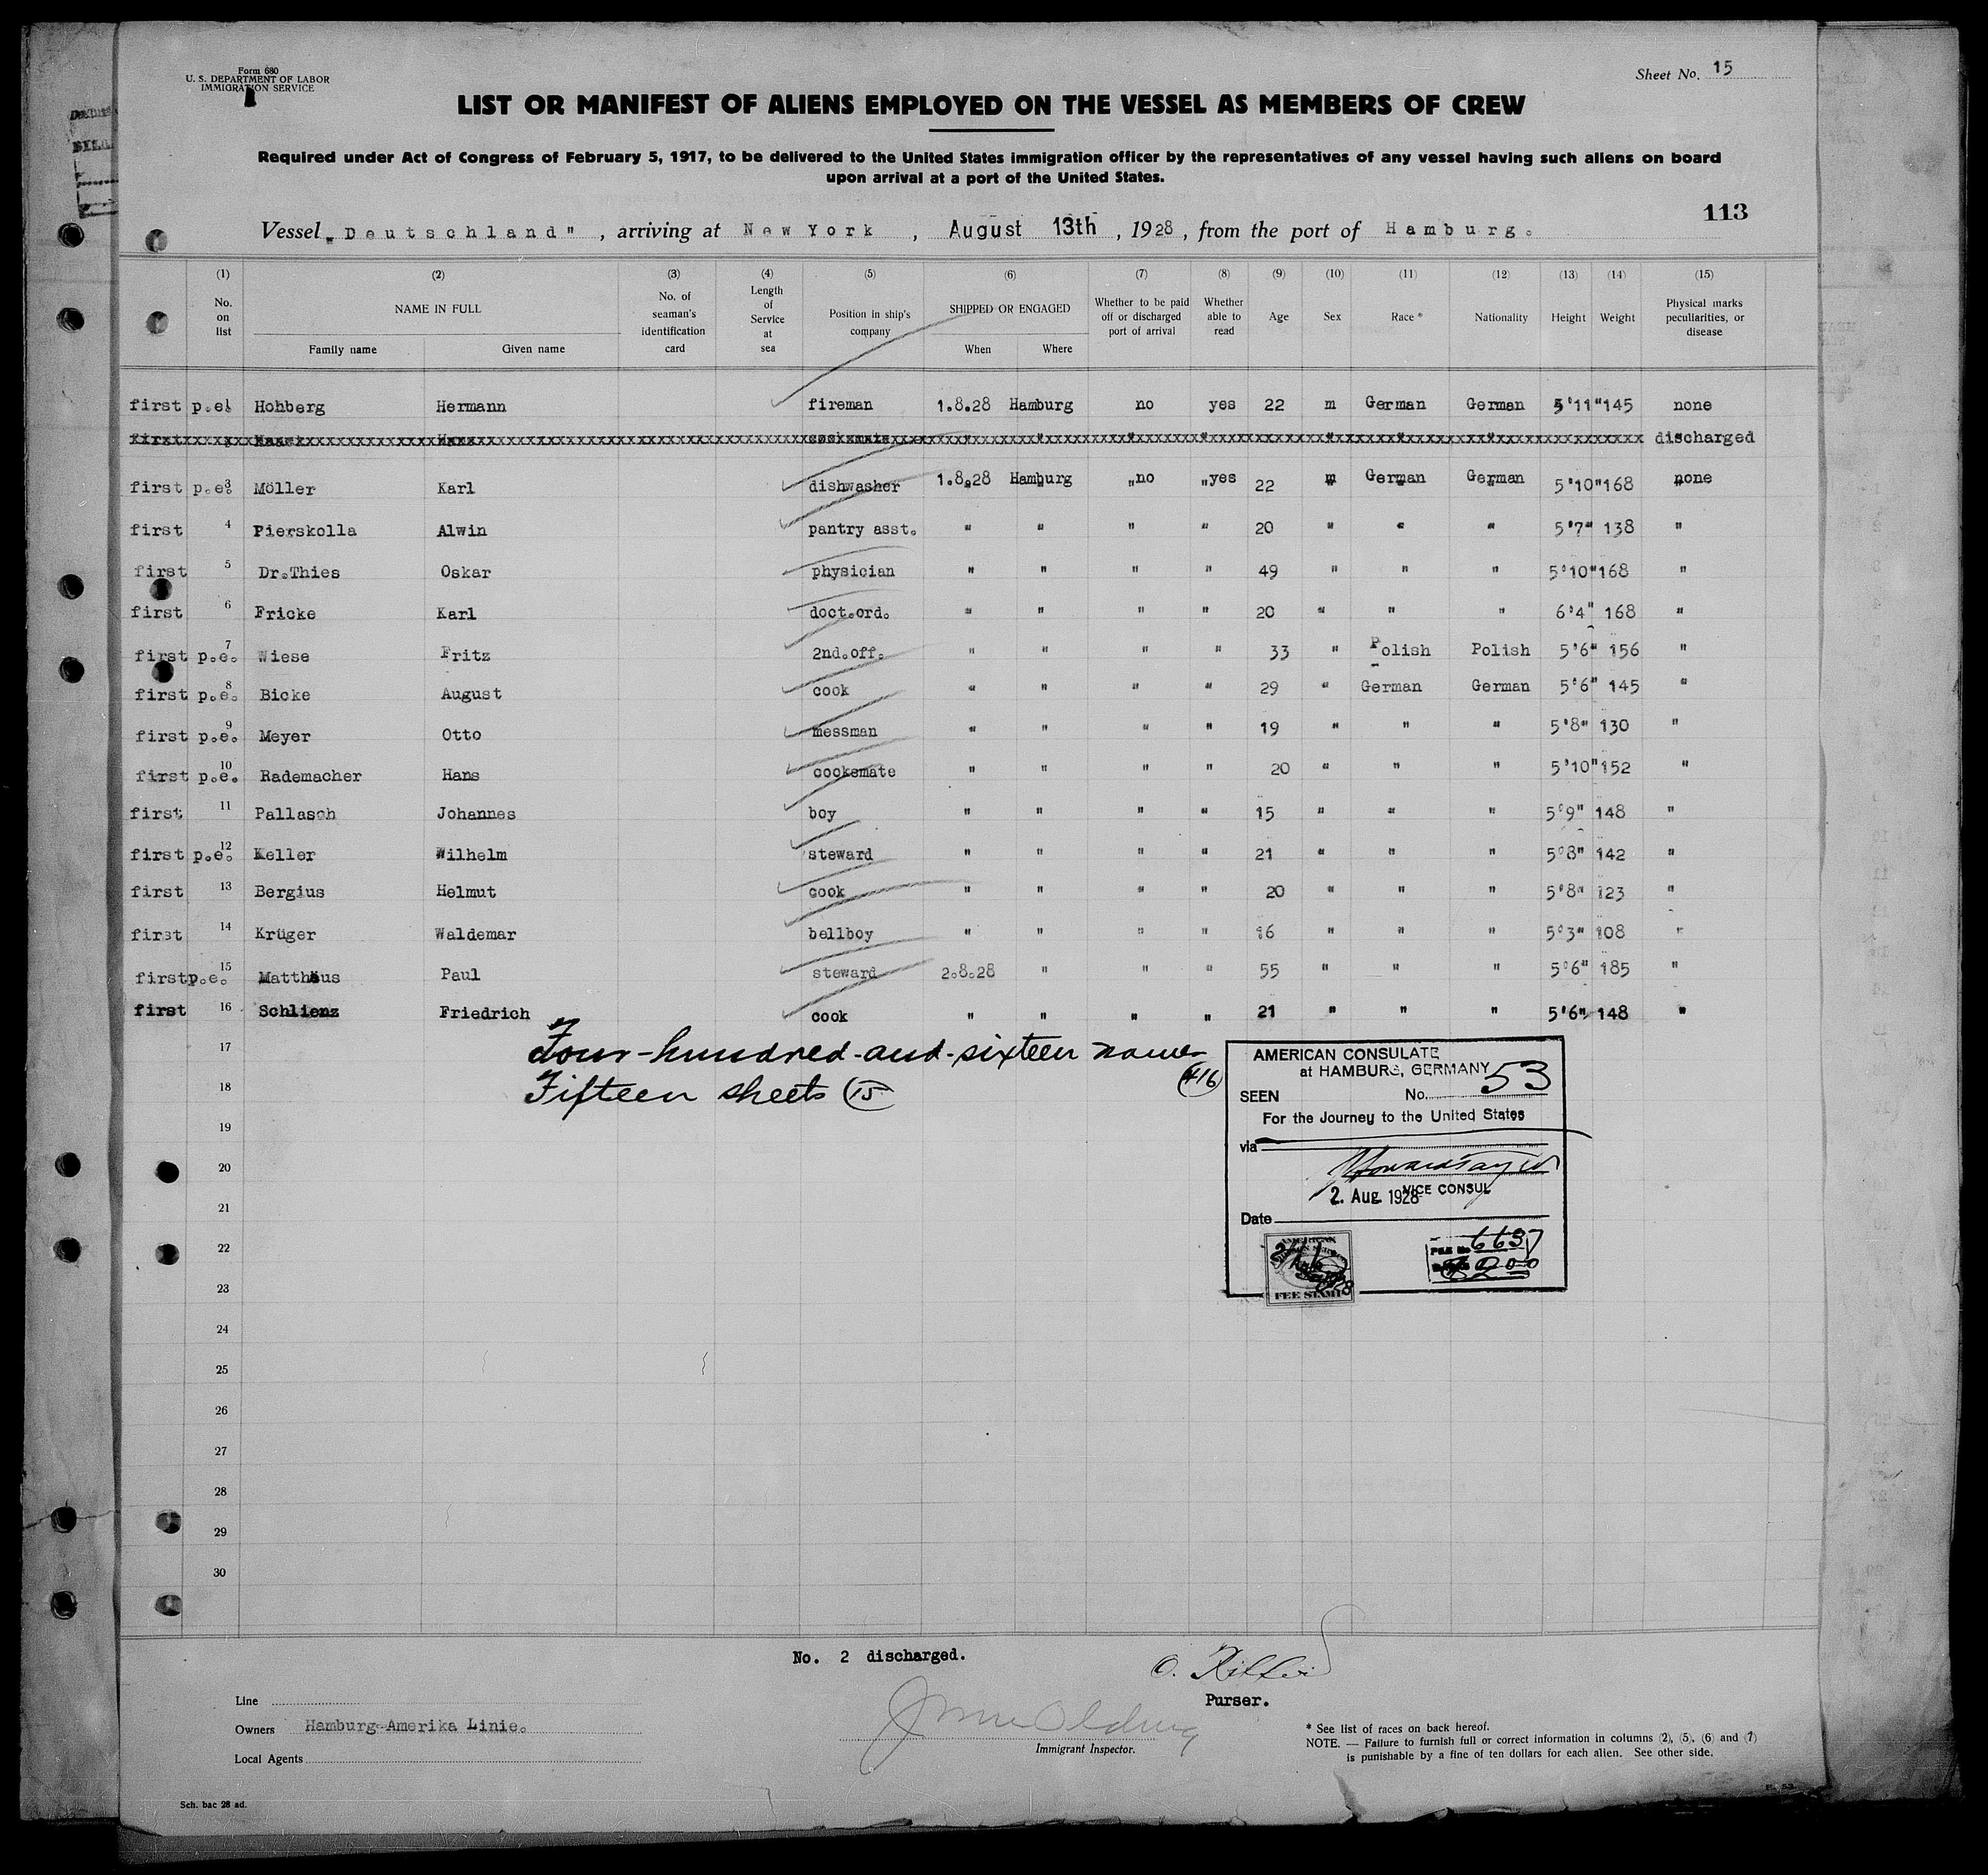 Form 680
U. S. DEPARTMENT OF LABOR
IMMIGRATION SERVICE
Sheet No. 15
LIST OR MANIFEST OF ALIENS EMPLOYED ON THE VESSEL AS MEMBERS OF CREW
Required under Act of Congress of February 5, 1917, to be delivered to the United States immigration officer by the representatives of any vessel having such aliens on board
upon arrival at a port of the United States.
113
Vessel „Deutschland" , arriving at New York , August 13th , 1928 , from the port of Hamburg.
(1) (2) (3) (4) (5) (6) (7) (8) (9) (10) (11) (12) (13) (14) (15)
No. on list NAME IN FULL Family name Given name No. of seaman's identification card Length of Service at sea Position in ship's company SHIPPED OR ENGAGED When Where Whether to be paid off or discharged port of arrival Whether able to read Age Sex Race * Nationality Height Weight Physical marks peculiarities, or disease
first p.e. 1 Hohberg Hermann fireman 1.8.28 Hamburg no yes 22 m German German 5'11" 145 none
first Hans cooksmate discharged
first p.e. 3 Möller Karl dishwasher 1.8.28 Hamburg no yes 22 m German German 5'10" 168 none
first 4 Pierskolla Alwin pantry asst. " " " " 20 " " " 5'7" 138 "
first 5 Dr.Thies Oskar physician " " " " 49 " " " 5'10" 168 "
first 6 Fricke Karl doct.ord. " " " " 20 " " " 6'4" 168 "
first p.e. 7 Wiese Fritz 2nd.off. " " " " 33 " Polish Polish 5'6" 156 "
first p.e. 8 Bicke August cook " " " " 29 " German German 5'6" 145 "
first p.e. 9 Meyer Otto messman " " " " 19 " " " 5'8" 130 "
first p.e. 10 Rademacher Hans cooksmate " " " " 20 " " " 5'10" 152 "
first 11 Pallasch Johannes boy " " " " 15 " " " 5'9" 148 "
first p.e. 12 Keller Wilhelm steward " " " " 21 " " " 5'8" 142 "
first 13 Bergius Helmut cook " " " " 20 " " " 5'8" 123 "
first 14 Krüger Waldemar bellboy " " " " 16 " " " 5'3" 108 "
first p.e. 15 Matthäus Paul steward 2.8.28 " " " 55 " " " 5'6" 185 "
first 16 Schlienz Friedrich cook " " " " 21 " " " 5'6" 148 "
17
Four-hundred-and-sixteen names
(416)
18
Fifteen sheets (15)
19
20
21
22
23
24
25
26
27
28
29
30
AMERICAN CONSULATE
at HAMBURG, GERMANY
SEEN No. 53
For the Journey to the United States
via
2. Aug. 1928
VICE CONSUL
Date
AMERICAN
FEE STAMP
FILE No 6637
No. 2 discharged.
Purser.
Line
Owners Hamburg-Amerika Linie.
Local Agents
Immigrant Inspector.
* See list of races on back hereof.
NOTE. — Failure to furnish full or correct information in columns (2), (5), (6) and (7)
is punishable by a fine of ten dollars for each alien. See other side.
Sch. bac 28 ad.